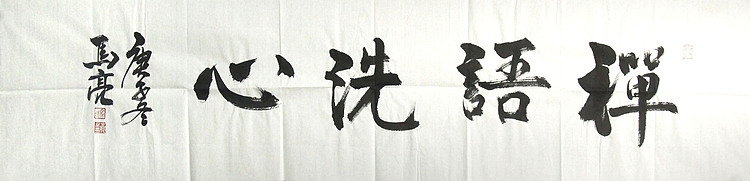 禪語洗心
庚子冬
馬亮